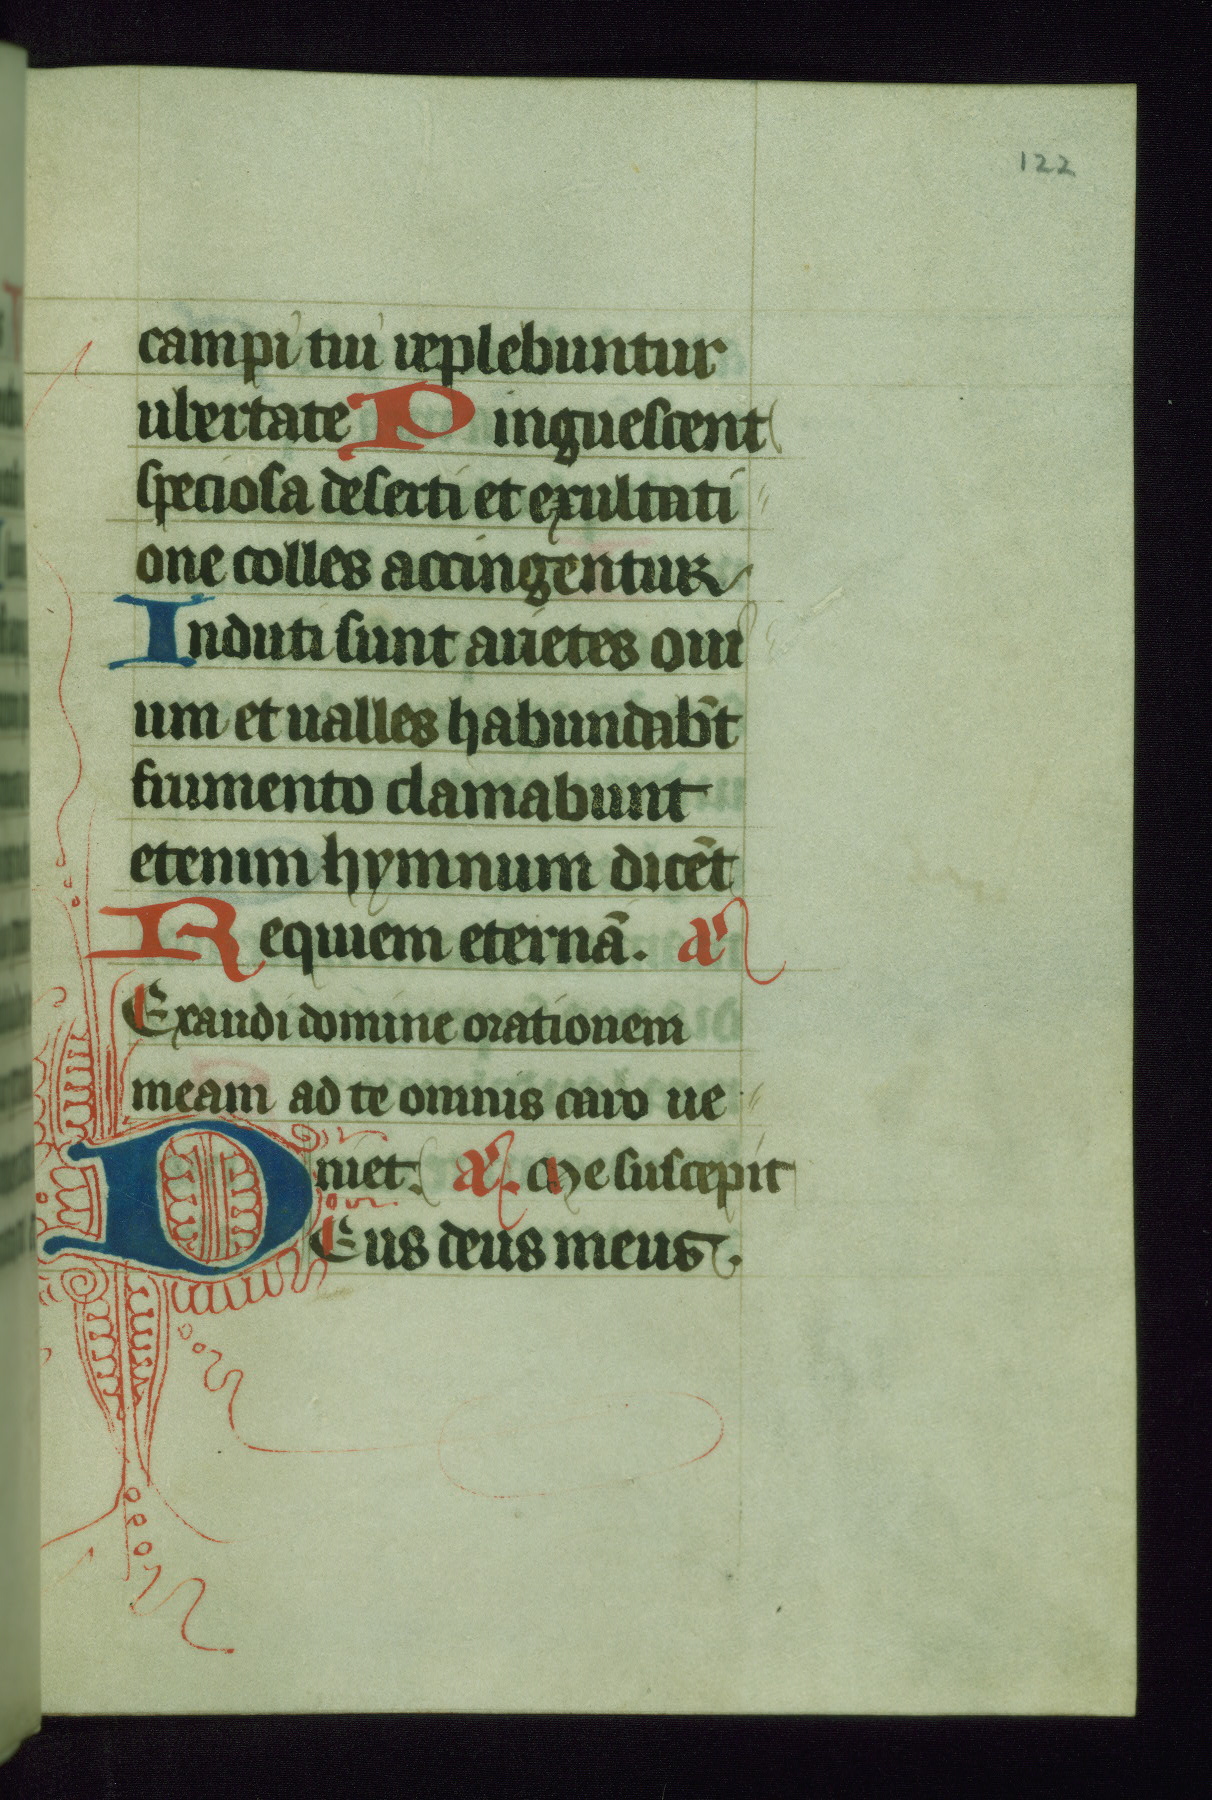 122
campi tui replebuntur
ubertate Pinguescent
speciosa deserti et exultati
one colles accingentur
Induti sunt arietes oui
um et ualles habundab̄t
frumento clamabunt
etenim hymnum dicēt
Requiem eternā. a͛
Exaudi domine orationem
meam ad te omnis caro ue
niet. a͛. Me suscepit
DEus deus meus.